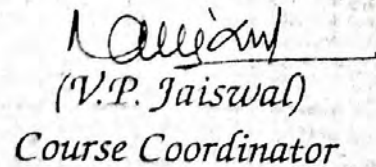 (V.P. Jaiswal)
Course Coordinator